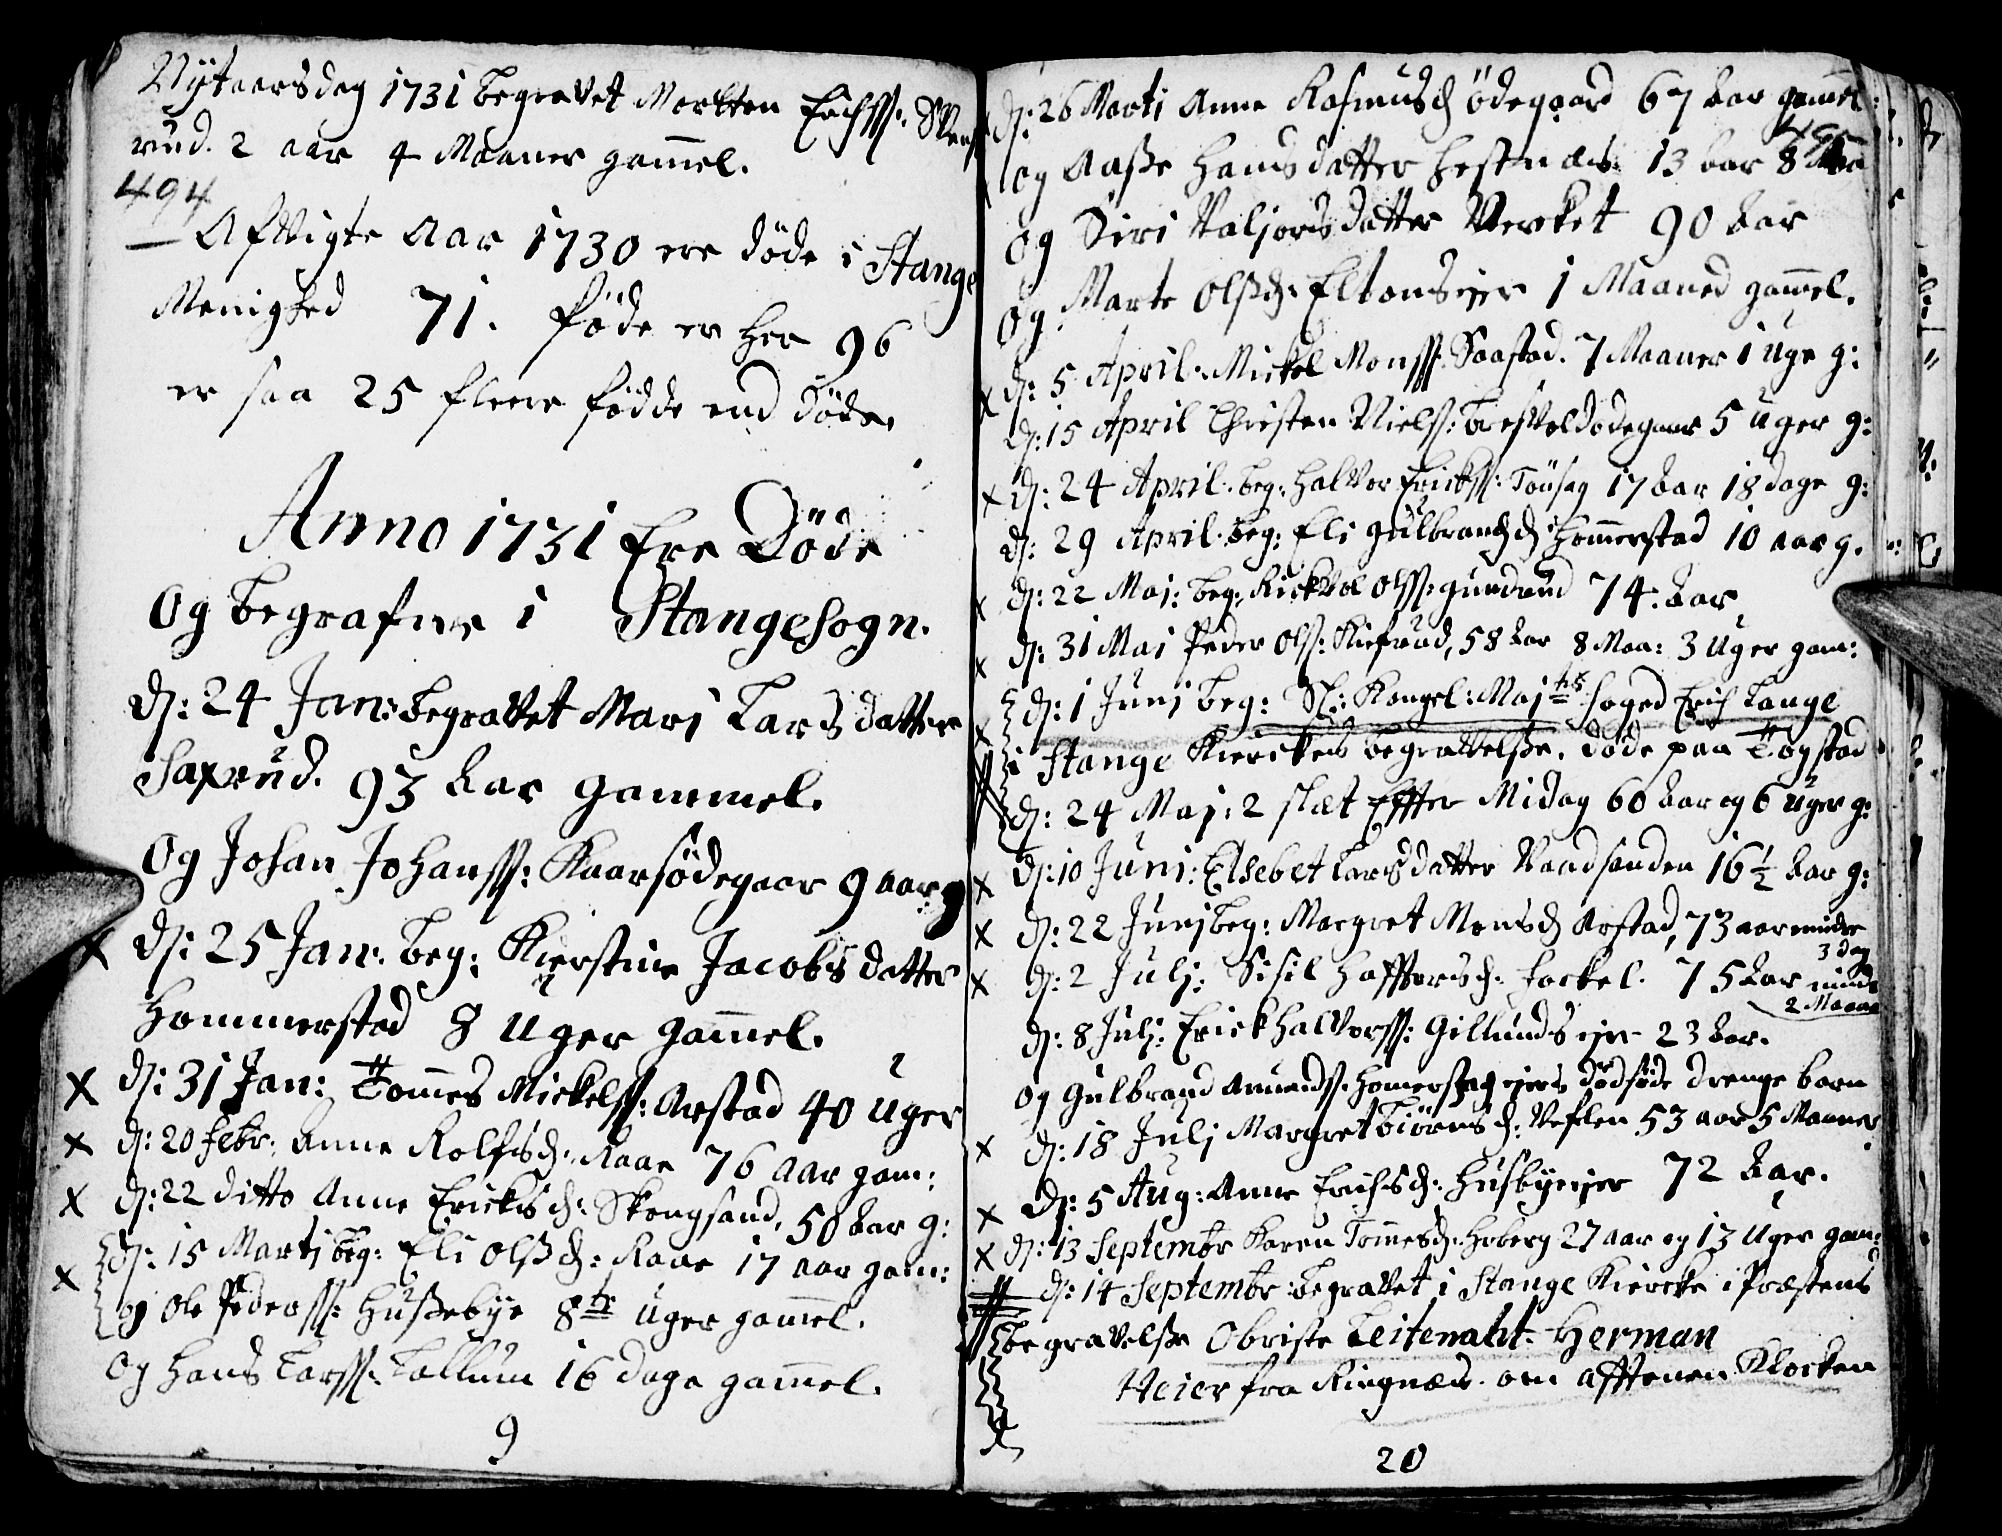 Nÿtaarsdag 1731 begravet Mortten Erichss: Skens
rud. 2 aar 4 Maaner gam̄el.
494
Afvigte Aar 1730 ere døde i Stange
Menighed 71. føde er her 96
er saa 25 fleere fødde end døde.
Anno 1731 Ere Døde
Og begrafne i Stange sogn.
d: 24 Jan: begravet Mari Lars datter
Saxrud. 93 Aar gammel.
Og Johan Johanss: Kaarsødegaar 9 aar g
x d: 25 Jan: beg: Kierstine Jacobs datter
Hommerstad 8 Uger gam̄el.
x d: 31 Jan: Tom̄es Mickelss: Arstad 40 Uger
x d: 20 febr: Anne Rolfsd: Raae 76 aar gam:
x d: 22 ditto Anne Ericks d: Skongsand, 50 Aar g:
x d: 15 Martj beg: Eli Olsd: Raae 17 aar gam:
og Ole Pederss: Hussebye 8te Uger gam̄el.
Og Hans Larss: Tallum 16 dage gam̄el.
9
d: 26 Marti Anne Rasmusd Ødegaard 67 Aar gam̄el:
495
og Aasse Hansdatter Hestnæs 13 Aar 8 Maa
og Siri Valjors datter Verket 90 Aar
og Marte Olsd: Eltons ejer 1 Maaned gam̄el.
x d: 5 April. Mickel Monss: Saastad. 7 Maaner 1 Uge g:
d: 15 April Christen Niels: Bresvoldødegaar 5 Uger g:
x d: 24 April. beg: Halvor Erickss: Tousag 17 Aar 18 dage g:
d: 29 April. beg: Eli Gulbrandsd Hom̄erstad 10 aar g.
x d: 22 Maj: beg: Rickvol Olss: Gundrud 74. Aar
x d: 31 Mai Peder Ols: Kiefrud, 58 Aar 8 Maa: 3 Uger gam:
x d: 1 Junj beg: Sl: Kongel: Majts foged Erich Lange
i Stange Kierckes begravelsse. døde paa Togstad
d: 24 Maj: 2 slæt Effter Midag 60 Aar og 6 Uger g:
x d: 10 Juni: Elsebet Larsdatter Vaadsanden 16½ Aar g:
x d: 22 Junj beg: Margret Monsd Arstad, 73 aar mindre
3 dag
x d: 2 Julj: Sisil Haffvorsd: Jockel. 75 Aar mind
2 Maane
d: 8 Julj: Erick Halvorss: Gillunds ejer 23 Aar.
og Gulbrand Amunds. Homerstad ejers dødføde drenge barn
x d: 18 Julj Margret Biørnsd: Veflen 53 aar 5 Maaner
x d: 5 Aug: Anne Erichsd: Husbyeijer 72 Aar.
x d: 13 Septembr Karen Tom̄esd. Hoberg 27 aar og 13 Uger gam:
d: 14 Septembr: begravet i Stange Kiercke i Præstens
begravelsse Obriste Leitenaht: Herman
Heier fra Ringnæs. om afftenen Klocken
20